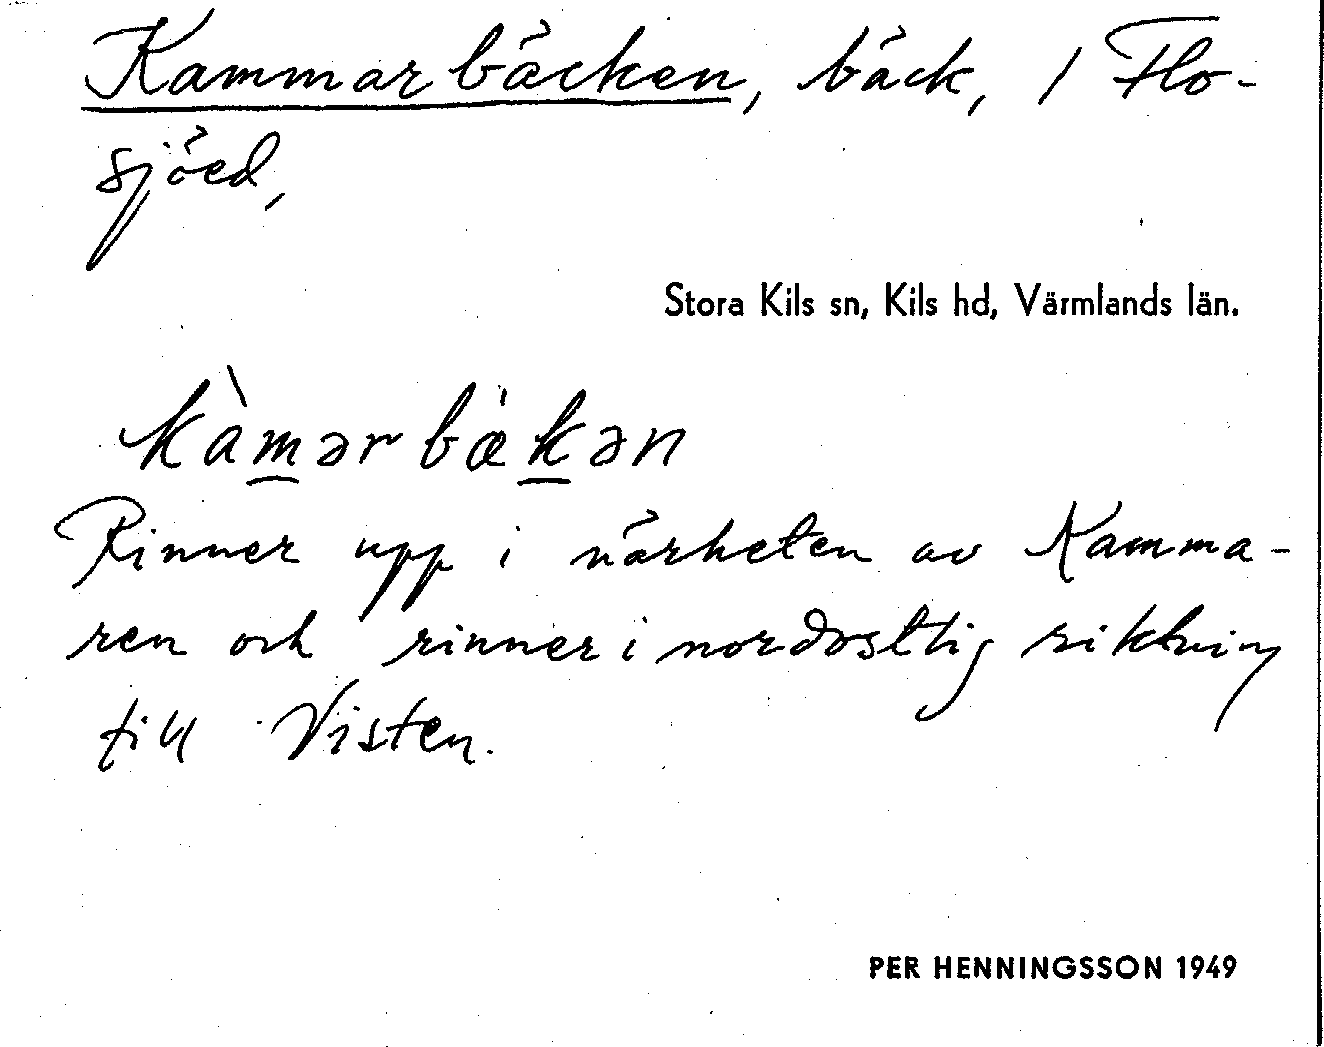 Kammarbäcken, bäck, / Flo-
sjöed,
Stora Kils sn, Kils hd, Värmlands län.
kàm̲ərbæ̀k̲ən
Rinner upp i närheten av Kamma-
ren och rinner i nordostlig riktning
till Visten.
PER HENNINGSSON 1949